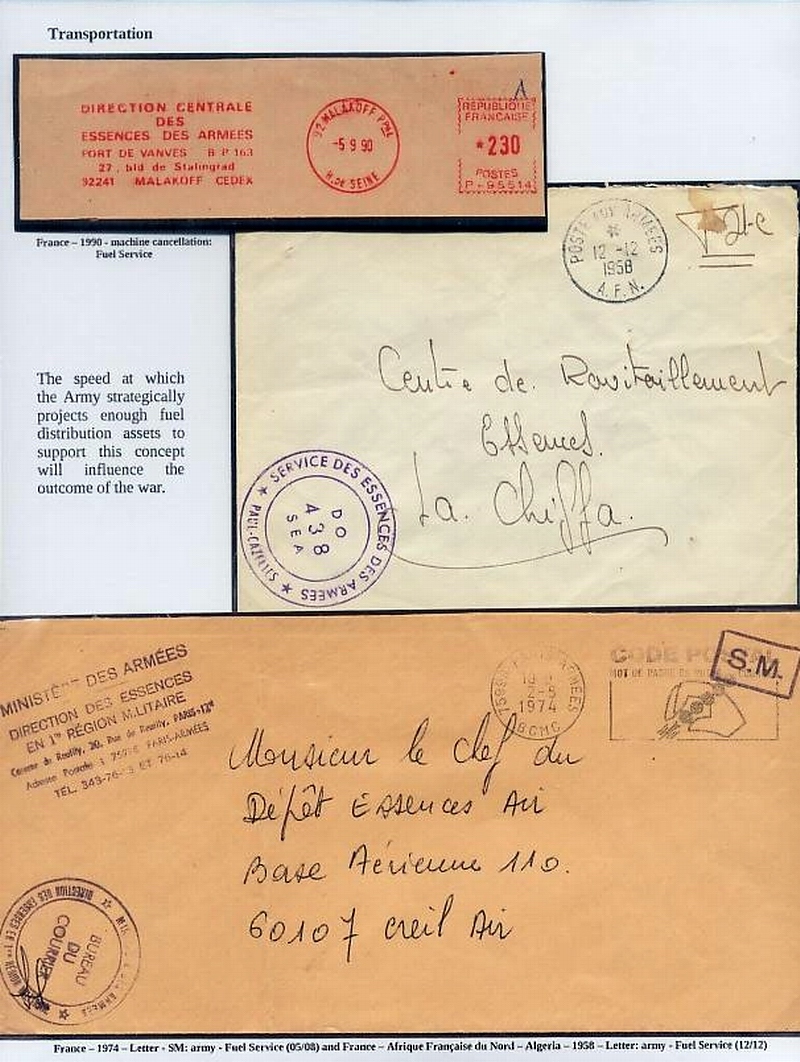 Transportation
DIRECTION CENTRALE
DES
ESSENCES DES ARMEES
FORT DE VANVES B P 163
27, bld de Stalingrad
92241 MALAKOFF CEDEX
92 MALAKOFF PPAL
-5 9 90
H. DE SEINE
A
REPUBLIQUE
FRANCAISE
*230
POSTES
P-95514
France – 1990 - machine cancellation:
Fuel Service
POSTE AUX ARMEES
*
12 -12
1958
A.F.N.
The speed at which
the Army strategically
projects enough fuel
distribution assets to
support this concept
will influence the
outcome of the war.
Centre de Ravitaillement
Essences.
La. Chiffa.
SERVICE DES ESSENCES DES ARMEES
PAUL-CAZELLES
DO
438
SEA
MINISTÈRE DES ARMÉES
DIRECTION DES ESSENCES
EN 1re RÉGION MILITAIRE
Caserne de Reuilly, 20, Rue de Reuilly, PARIS-12e
Adresse Postale : 75998 PARIS-ARMÉES
TÉL. 343-76- ET 76-14
ARMEES
2-5
1974
BCMC
CODE POSTAL
MOT DE PASSE
S.M.
Monsieur le chef du
Dépôt Essences Air
Base Aérienne 110.
60107 Creil Air
DIRECTION DES ESSENCES EN 1re
BUREAU
DU
COURRIER
France – 1974 – Letter - SM: army - Fuel Service (05/08) and France – Afrique Française du Nord – Algeria – 1958 – Letter: army - Fuel Service (12/12)